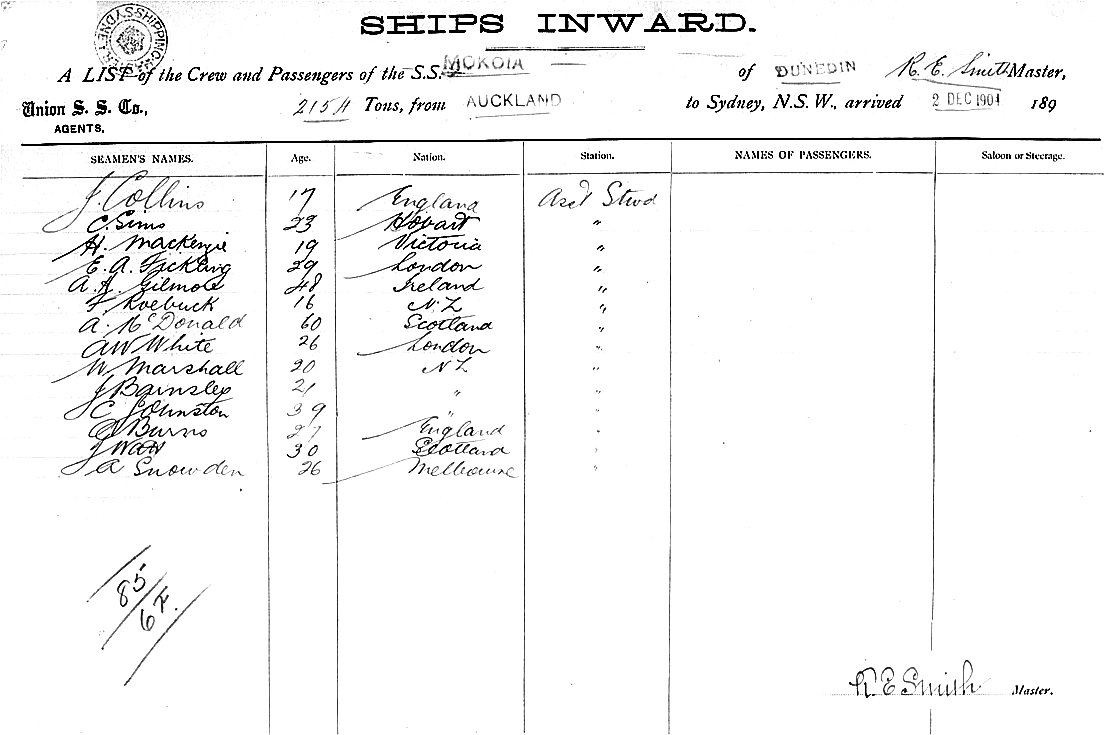 SHIPS INWARD.
A LIST of the Crew and Passengers of the S.S. MOKOIA of DUNEDIN R. E. Smith Master,
Union S. S. Co., 2154 Tons, from AUCKLAND to Sydney, N.S.W., arrived 2 DEC 1901 189
AGENTS.
SEAMEN'S NAMES. Age. Nation. Station. NAMES OF PASSENGERS. Saloon or Steerage.
J. Collins 17 England Asst Stwd
C. Sims 23 Hobart "
H. Mackenzie 19 Victoria "
E. A. Fickling 29 London "
A. A. Gilmore 48 Ireland "
F Roebuck 16 N.Z "
A. McDonald 60 Scotland "
AW White 26 London "
W Marshall 20 NZ "
J Bainsley 21 " "
C Johnston 39 " "
Burns 27 England "
J Watt 30 Scotland "
A Snowden 26 Melbourne "
85/
6 F.
R. E Smith Master.